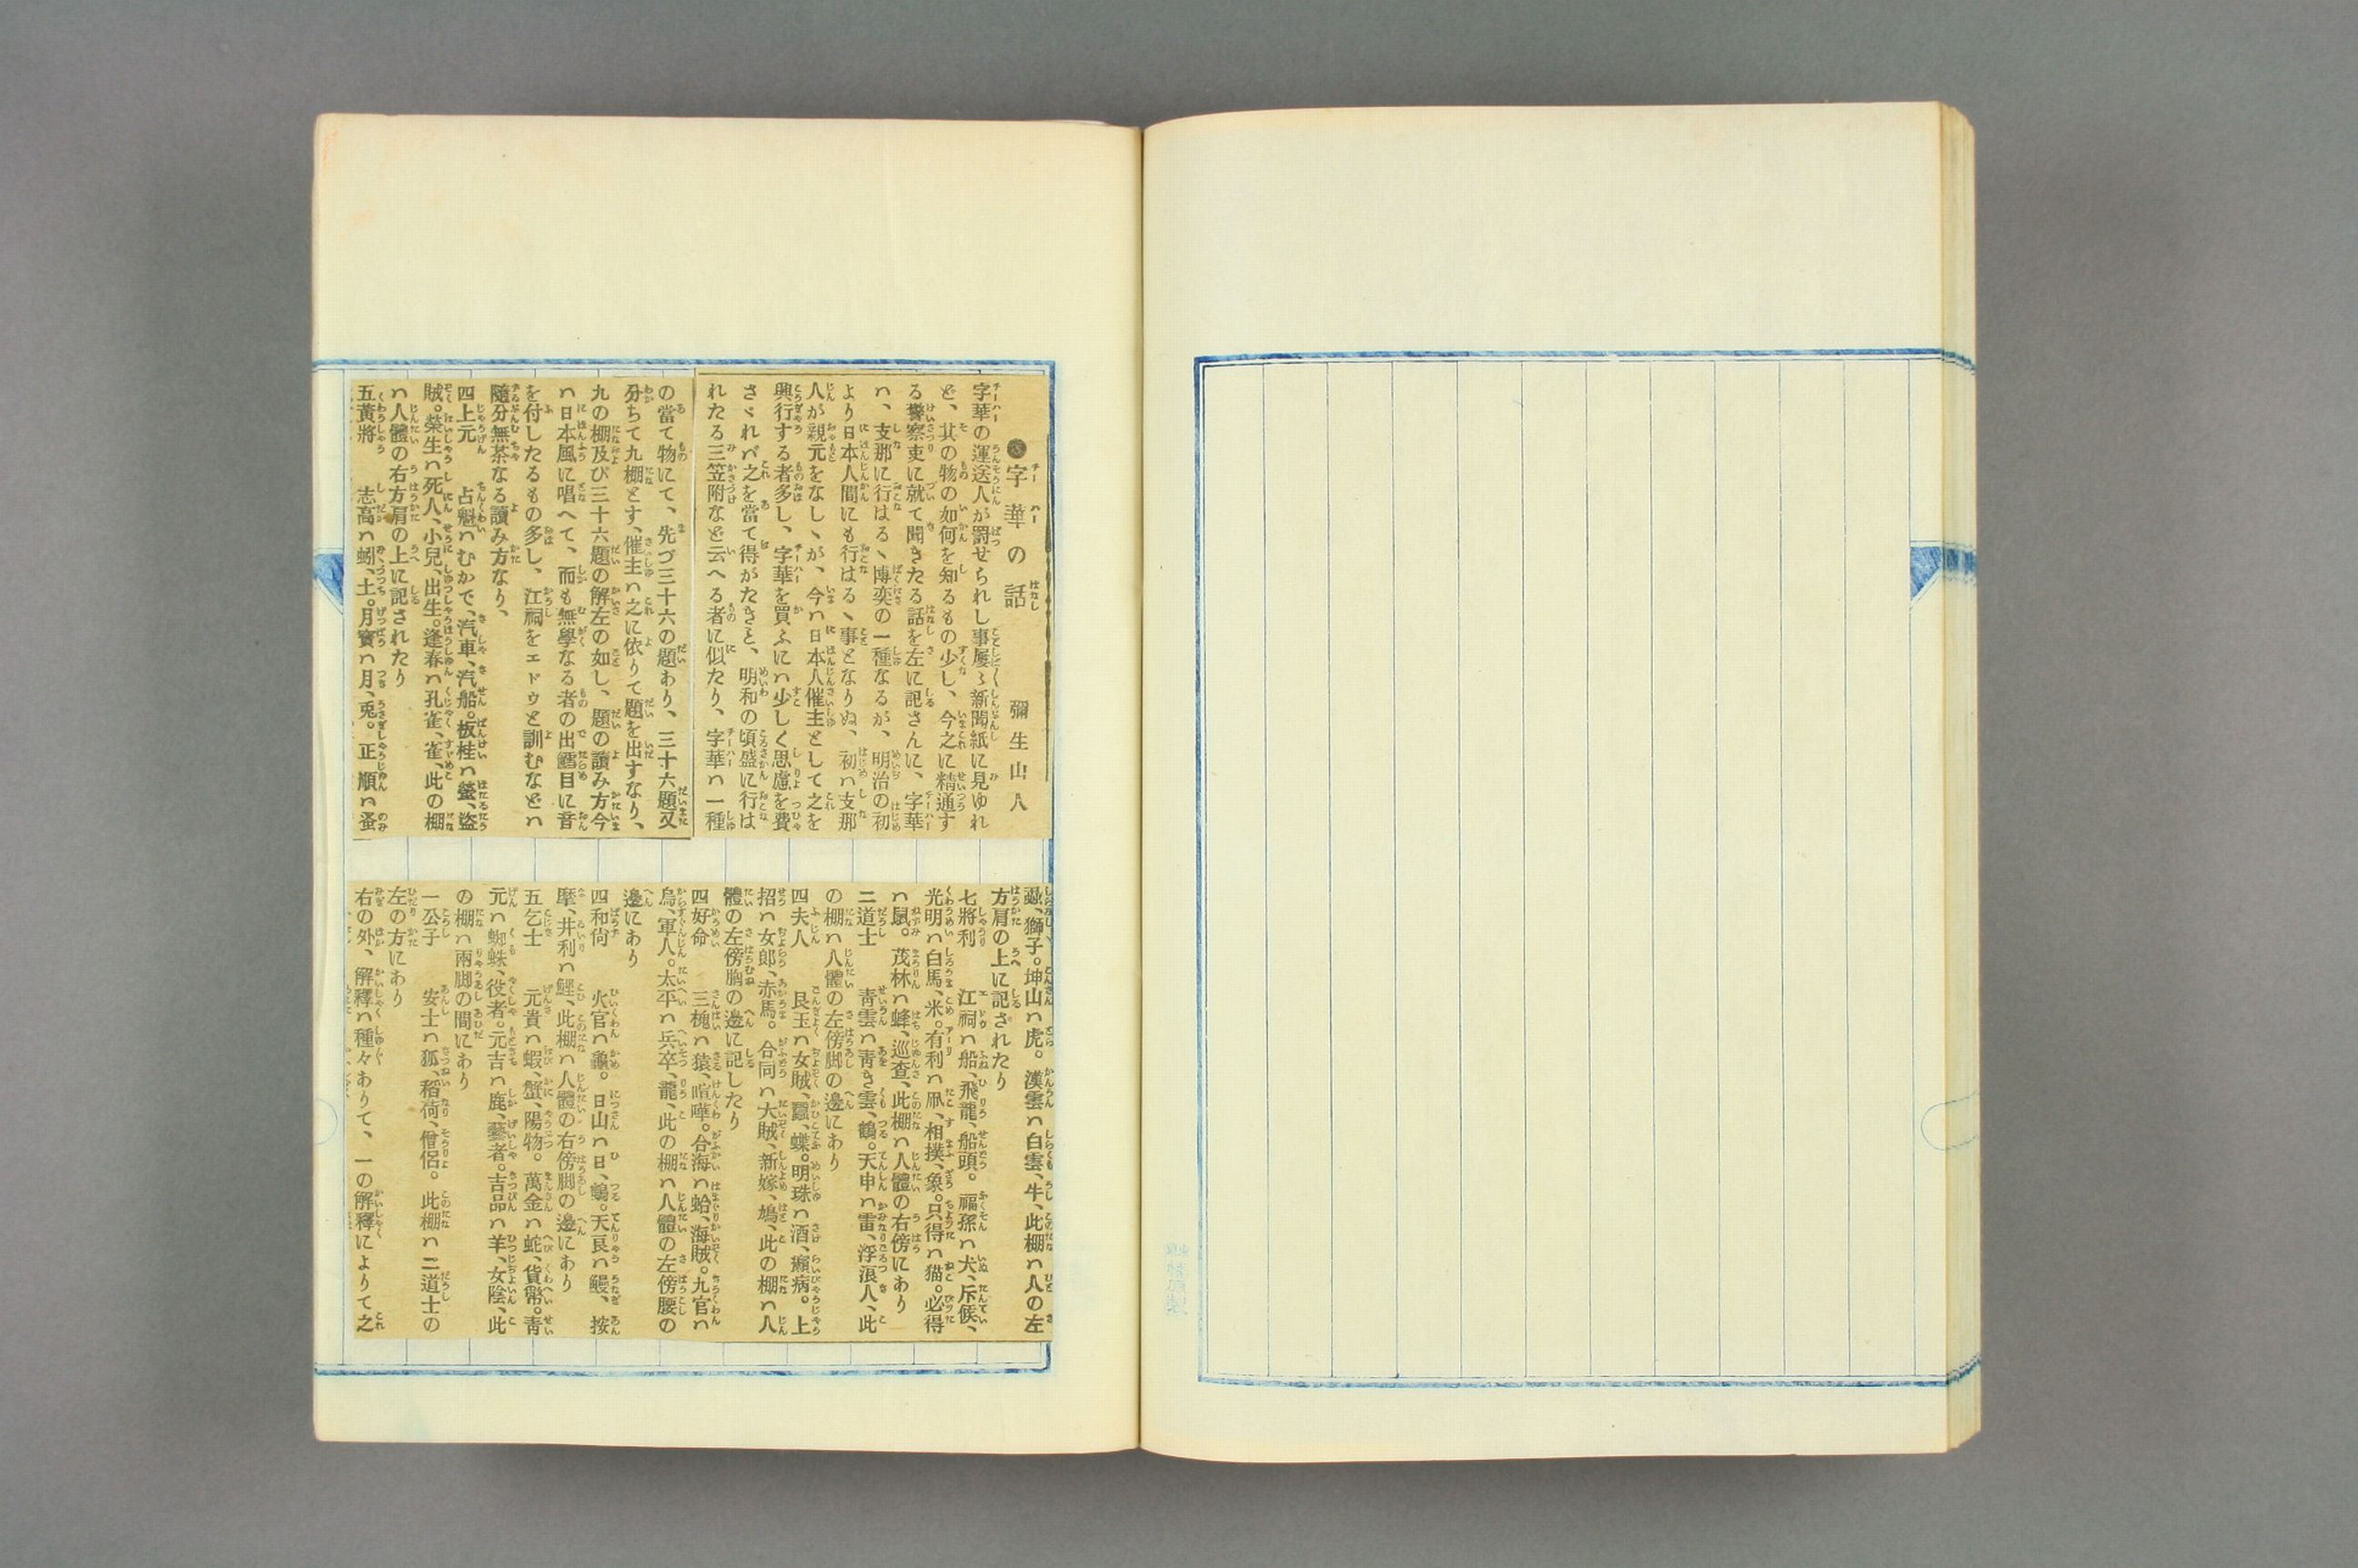 ●字華の話　彌生山人
字華の運送人が罰せられし事屡〻新聞紙に見ゆれ
ど、其の物の如何を知るもの少し、今之に精通す
る警察吏に就て聞きたる話を左に記さんに、字華
ハ、支那に行はるゝ博奕の一種なるが、明治の初
より日本人間にも行はるゝ事となりぬ、初ハ支那
人が親元をなしゝが、今ハ日本人催主として之を
興行する者多し、字華を買ふにハ少しく思慮を費
さゞれバ之を當て得がたきと、明和の頃盛に行は
れたる三笠附など云へる者に似たり、字華ハ一種
の當て物にて、先づ三十六の題あり、三十六題又
分ちて九棚とす、催主ハ之に依りて題を出すなり、
九の棚及び三十六題の解左の如し、題の讀み方今
ハ日本風に唱へて、而も無學なる者の出鱈目に音
を付したるもの多し、江祠をエドゥと訓むなどハ
隨分無茶なる讀み方なり、
四上元　占魁ハむかで、汽車、汽船。板桂ハ螢、盜
賊。榮生ハ死人、小兒、出生。逢春ハ孔雀、雀、此の棚
ハ人體の右方肩の上に記されたり
五黄將　志高ハ蚓、土。月寳ハ月、兎。正順ハ蚤
虱、獅子。坤山ハ虎。漢雲ハ白雲、牛、此棚ハ人の左
方肩の上に記されたり
七將利　江祠ハ船、飛龍、船頭。福孫ハ犬、斥候、
光明ハ白馬、米。有利ハ凧、相撲、象。只得ハ猫。必得
ハ鼠。茂林ハ蜂、巡査、此棚ハ人體の右傍にあり
二道士　靑雲ハ靑き雲、鶴。天申ハ雷、浮浪人、此
の棚ハ人體の左傍脚の邊にあり
四夫人　艮玉ハ女賊、蠶、蝶。明珠ハ酒、癩病。上
招ハ女郎、赤馬。合同ハ大賊、新嫁、鳩、此の棚ハ人
體の左傍胸の邊に記したり
四好命　三槐ハ猿、喧嘩。合海ハ蛤、海賊。九官ハ
烏、軍人。太平ハ兵卒、龍、此の棚ハ人體の左傍腰の
邊にあり
四和尙　火官ハ龜。日山ハ日、鷄。天良ハ鰻、按
摩、井利ハ鯉、此棚ハ人體の右傍脚の邊にあり
五乞士　元貴ハ蝦、蟹、陽物。萬金ハ蛇、貨幣。靑
元ハ蜘蛛、役者。元吉ハ鹿、藝者。吉品ハ羊、女陰、此
の棚ハ兩脚の間にあり
一公子　安士ハ狐、稻荷、僧侶。此棚ハ二道士の
左の方にあり
右の外、解釋ハ種々ありて、一の解釋によりて之